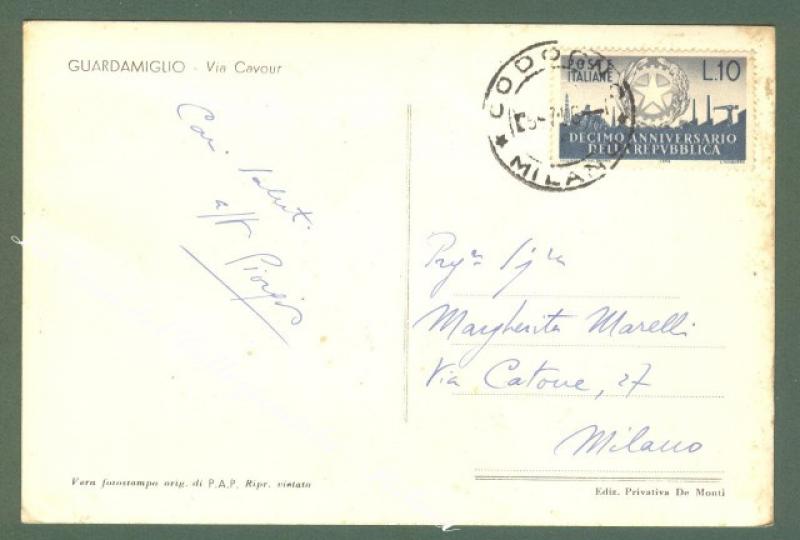 GUARDAMIGLIO - Via Cavour
CODOGNO
MILANO
POSTE
ITALIANE
L.10
DECIMO ANNIVERSARIO
DELLA REPVBBLICA
Cari saluti
aff
Giorgio
Sig.ra
Margherita Marelli
Via Catone, 27
Milano
Vera fotostampo orig. di P.A.P. Ripr. vietato
Ediz. Privativa De Monti